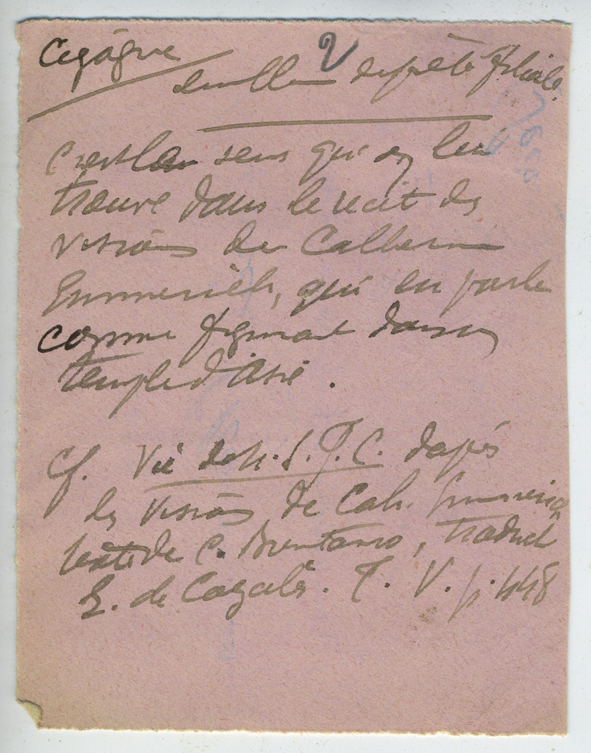 Cigogne
2
emblème de piété filiale.
C'est le sens qui on leur
trouve dans le récit des
visions de Catherine
Emmerich, qui en parle
comme figurant dans un
temple d'Asie.
Cf. Vie de N. S. J. C. d'après
les visions de Cath. Emmerich
texte de C. Brentano, traduct
E. de Cazalès. T. V. p. 448